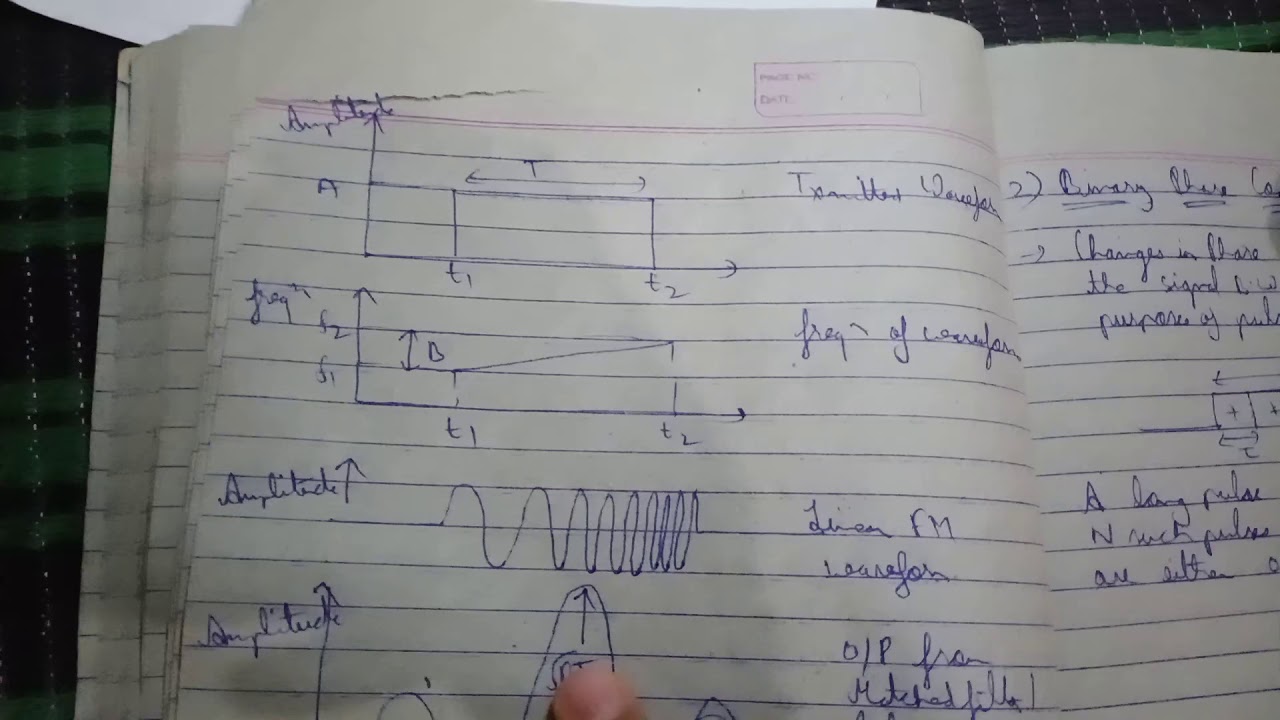 PAGE NO.
DATE:
Amplitude
T
A
Txmitted Waveform
t1
t2
freqn
f2
B
f1
freqn of waveform
t1
t2
Amplitude
Linear FM
waveform
Amplitude
O/P from
Matched filter
2) Binary Phase
→ Changes in Phase
the signal
purpose of
+ +
τ
A long pulse
N such pulses
are either